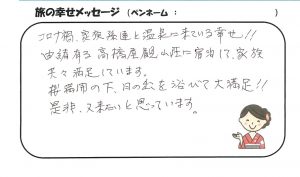 旅の幸せメッセージ（ペンネーム：　　　）
コロナ禍、家族孫達と温泉に来ている幸せ!!
由緒有る高橋屋観山荘に宿泊して、家族
共々満足しています。
桜満開の下、日の光を浴びて大満足!!
是非、又来たいと思っています。